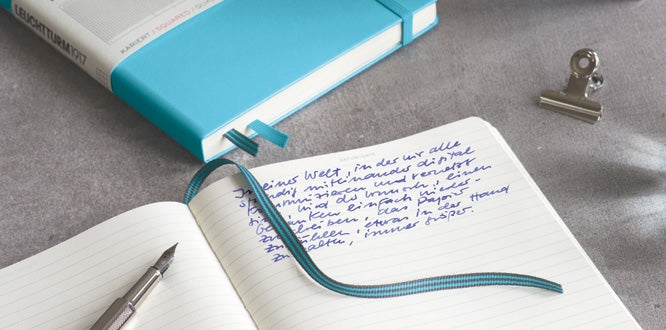 LEUCHTTURM1917
KARIERT / SQUARED /
In einer Welt, in der wir alle
ständig miteinander digital
kommunizieren und vernetzt
sind, wird der Wunsch, einen
Gedanken einfach nieder-
zuschreiben, das Papier
zu fühlen, etwas in der Hand
zu halten, immer größer.